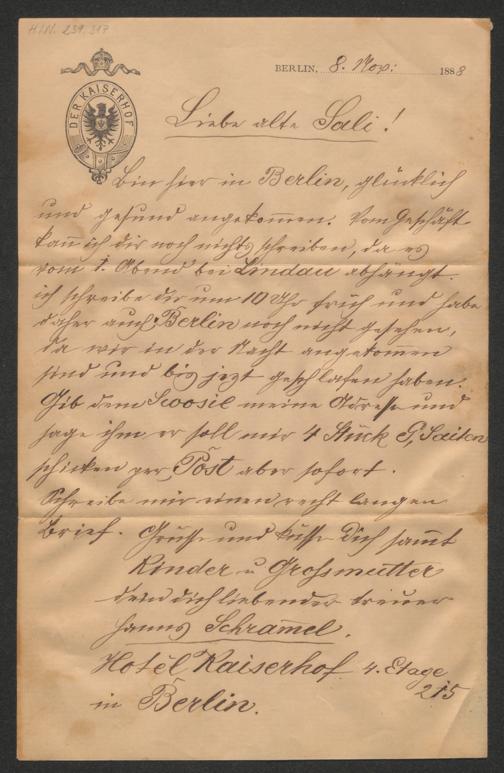 H.I.N. 239.317
DER KAISERHOF
BERLIN, 8. Nov: 1888
Liebe alte Sali!
Bin hier in Berlin, glücklich
und gesund angekom̅en. Vom Geschäft
kan̅ ich dir noch nichts schreiben, da es
vom 1. Abend bei Lindau abhängt.
ich schreibe dir um 10 Uhr früh und habe
daher auch Berlin noch nicht gesehen,
da wir in der Nacht angekom̅en
sind und bis jezt geschlafen haben.
Gib dem meine Adresse und
sage ihm er soll mir 4 Stück G, Saiten
schicken per Post aber sofort.
Schreibe mir einen recht langen
Brief. Grüsse und küsse Dich sam̅t
Kinder u Grossmutter
dein dich liebender treuer
Hanns Schram̅el.
Hotêl Kaiserhof 4. Etage
215
in Berlin.